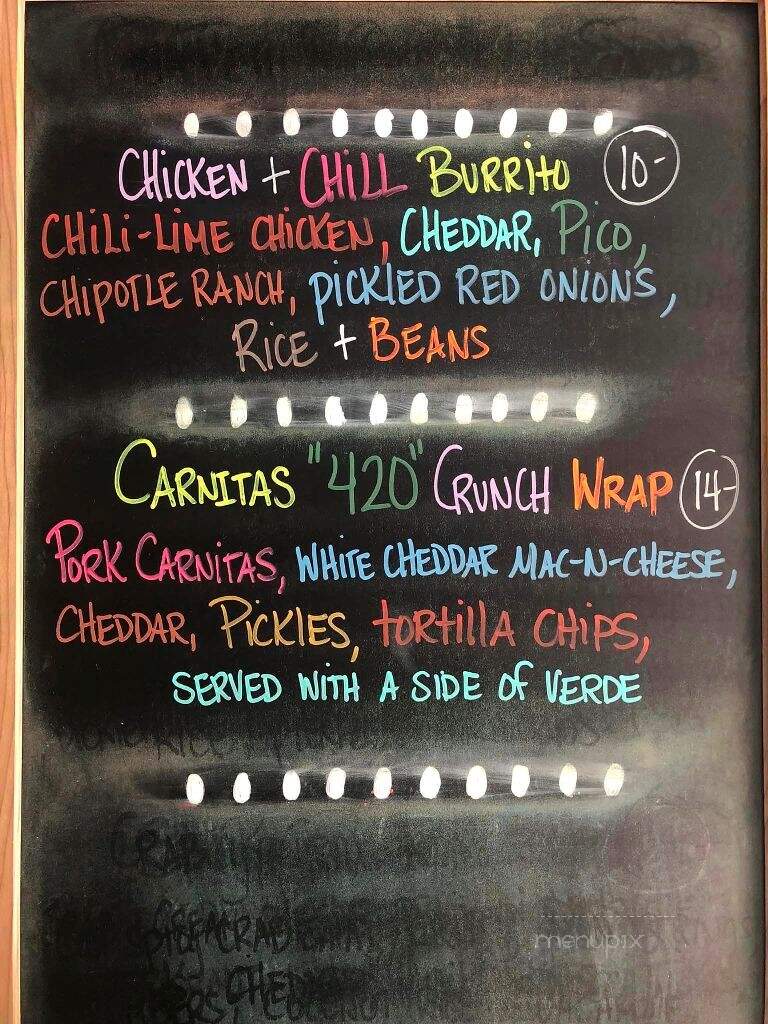 CHICKEN + CHILL BURRITO 10-
CHILI-LIME CHICKEN, CHEDDAR, PICO,
CHIPOTLE RANCH, PICKLED RED ONIONS,
RICE + BEANS
CARNITAS "420" CRUNCH WRAP 14-
PORK CARNITAS, WHITE CHEDDAR MAC-N-CHEESE,
CHEDDAR, PICKLES, TORTILLA CHIPS,
SERVED WITH A SIDE OF VERDE
menupix